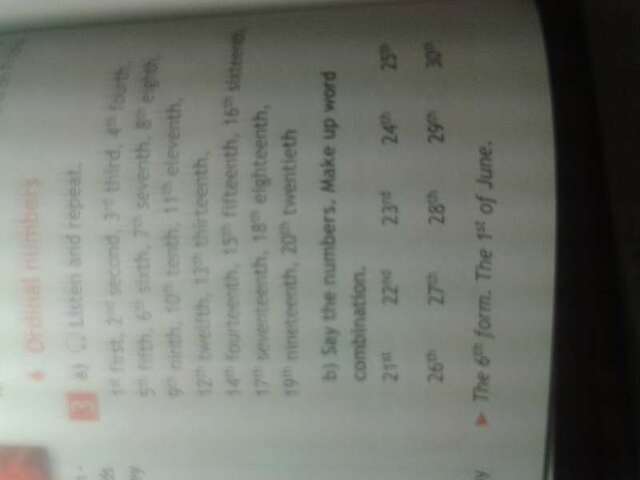 Ordinal numbers
3 a) Listen and repeat.
1st first, 2nd second, 3rd third, 4th fourth,
5th fifth, 6th sixth, 7th seventh, 8th eighth,
9th ninth, 10th tenth, 11th eleventh,
12th twelfth, 13th thirteenth,
14th fourteenth, 15th fifteenth, 16th sixteenth,
17th seventeenth, 18th eighteenth,
19th nineteenth, 20th twentieth
b) Say the numbers. Make up word
combination.
21st 22nd 23rd 24th 25th
26th 27th 28th 29th 30th
► The 6th form. The 1st of June.